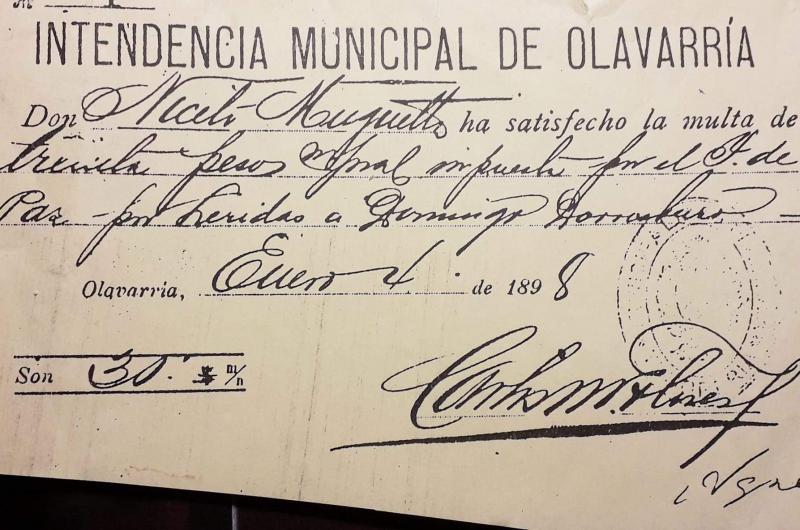 INTENDENCIA MUNICIPAL DE OLAVARRÍA
Don Niceto Muguetta ha satisfecho la multa de
treinta pesos m/nal impuesta por el J. de
Paz por heridas a Domingo
Olavarría, Enero 4 de 1898
Son 30. $ m/n
Carlos M.